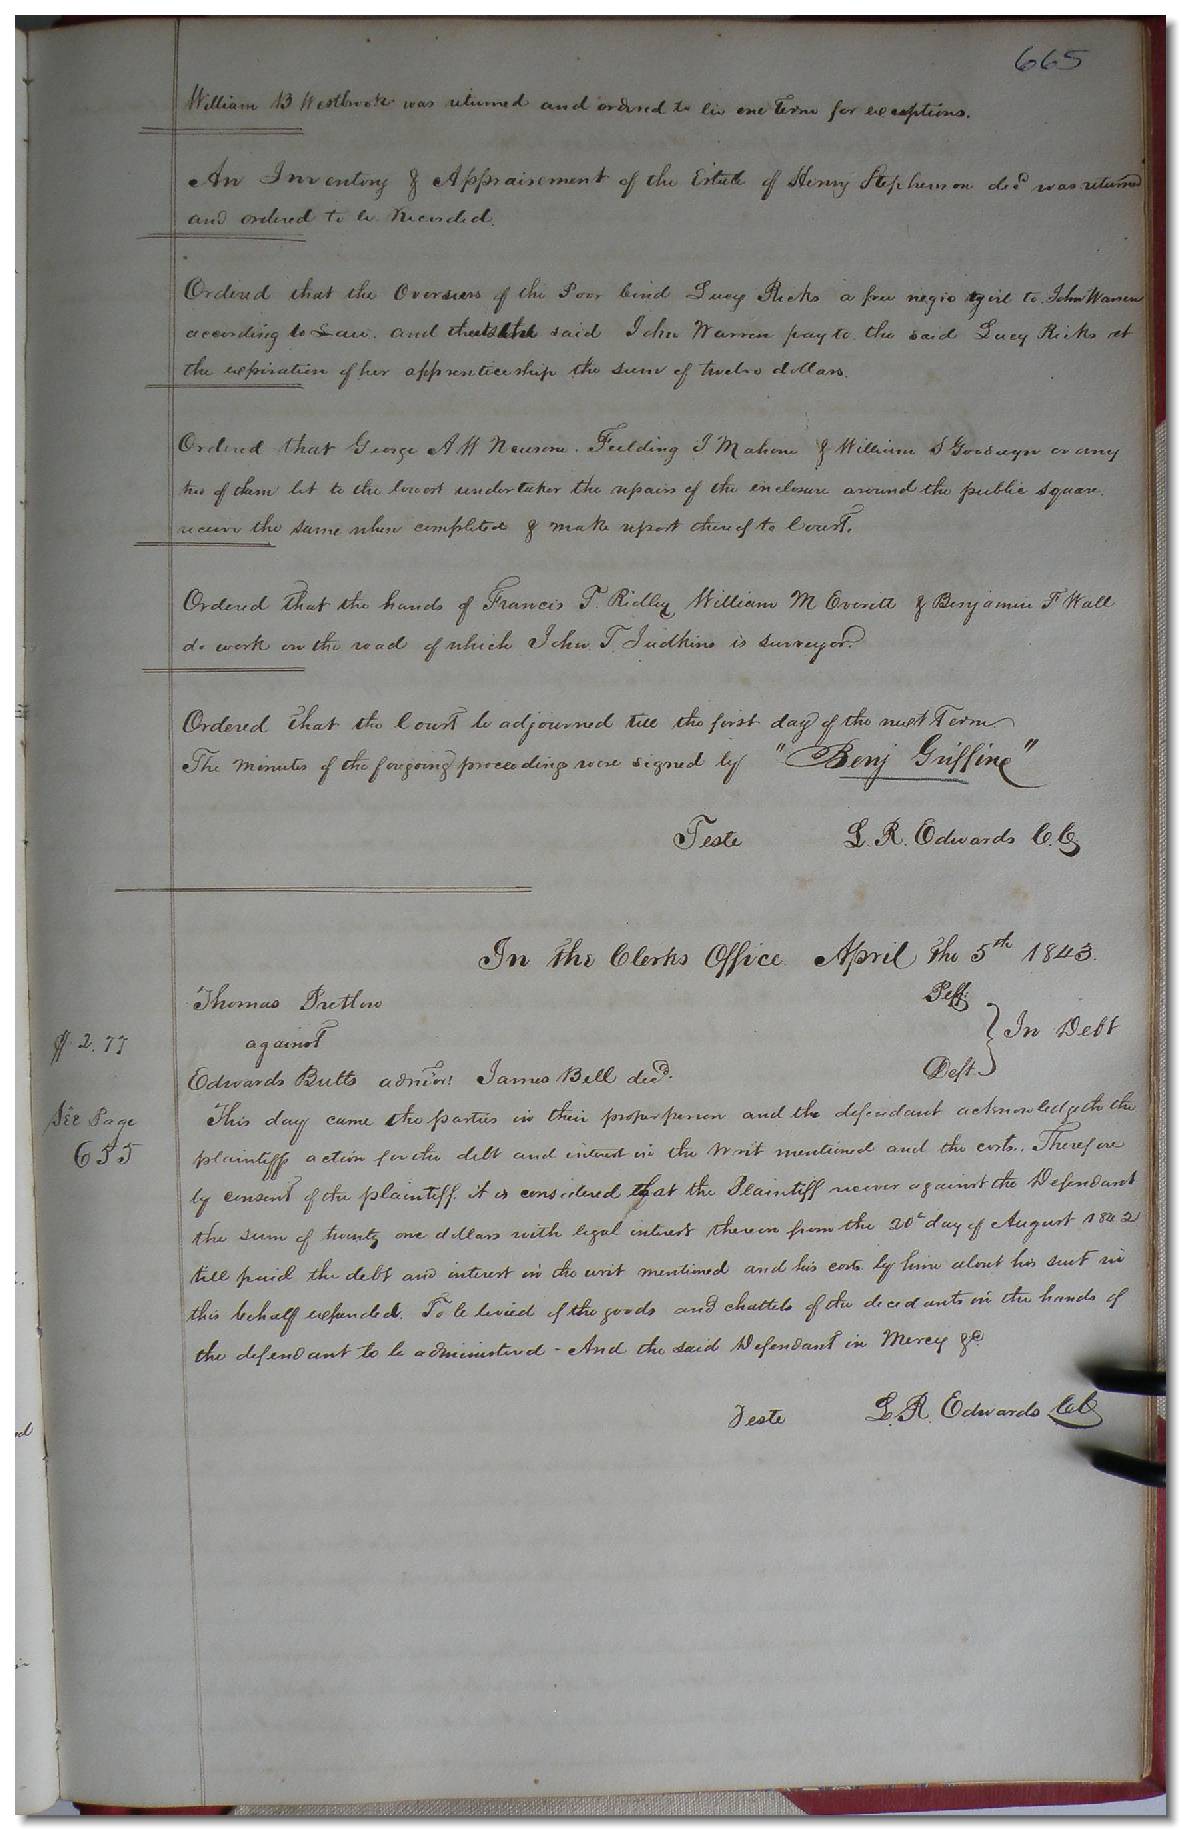 665
William B Westbrook was returned and ordered to lie one Term for exceptions.
An Inventory & Appraisement of the Estate of Henry Stephenson decd was returned
and ordered to be Recorded.
Ordered that the Overseers of the Poor bind Lucy Ricks a free negro girl to John Warren
according to Law. and that the said John Warren pay to the said Lucy Ricks at
the expiration of her apprenticeship the sum of twelve dollars.
Ordered that George A W Newsom. Feilding J Mahone & William S Goodwyn or any
two of them let to the lowest undertaker the repairs of the enclosure around the public square.
receive the same when completed & make report thereof to Court.
Ordered that the hands of Francis T. Ridley William M Everitt & Benjamin F Wall
do work on the road of which John T. Judkins is surveyor.
Ordered that the Court be adjourned till the first day of the next Term
The minutes of the foregoing proceedings were signed by "Benj Griffin"
Teste L. R. Edwards C.C
In the Clerks Office April the 5th 1843.
Thomas Pretlow Plff.
$ 2.77 against In Debt
Edwards Butts admor. James Bell decd. Deft
See Page This day came the parties in their proper person and the defendant acknowledgeth the
655 plaintiffs action for the debt and interest in the writ mentioned and the costs. Therefore
by consent of the plaintiff. it is considered that the Plaintiff recover against the Defendant
the sum of twenty one dollars with legal interest thereon from the 20t day of August 1842
till paid the debt and interest in the writ mentioned and his costs by him about his suit in
this behalf expended. To be levied of the goods and chattels of the decedants in the hands of
the defendant to be administered - And the said Defendant in Mercy &c
Teste L. R. Edwards CC